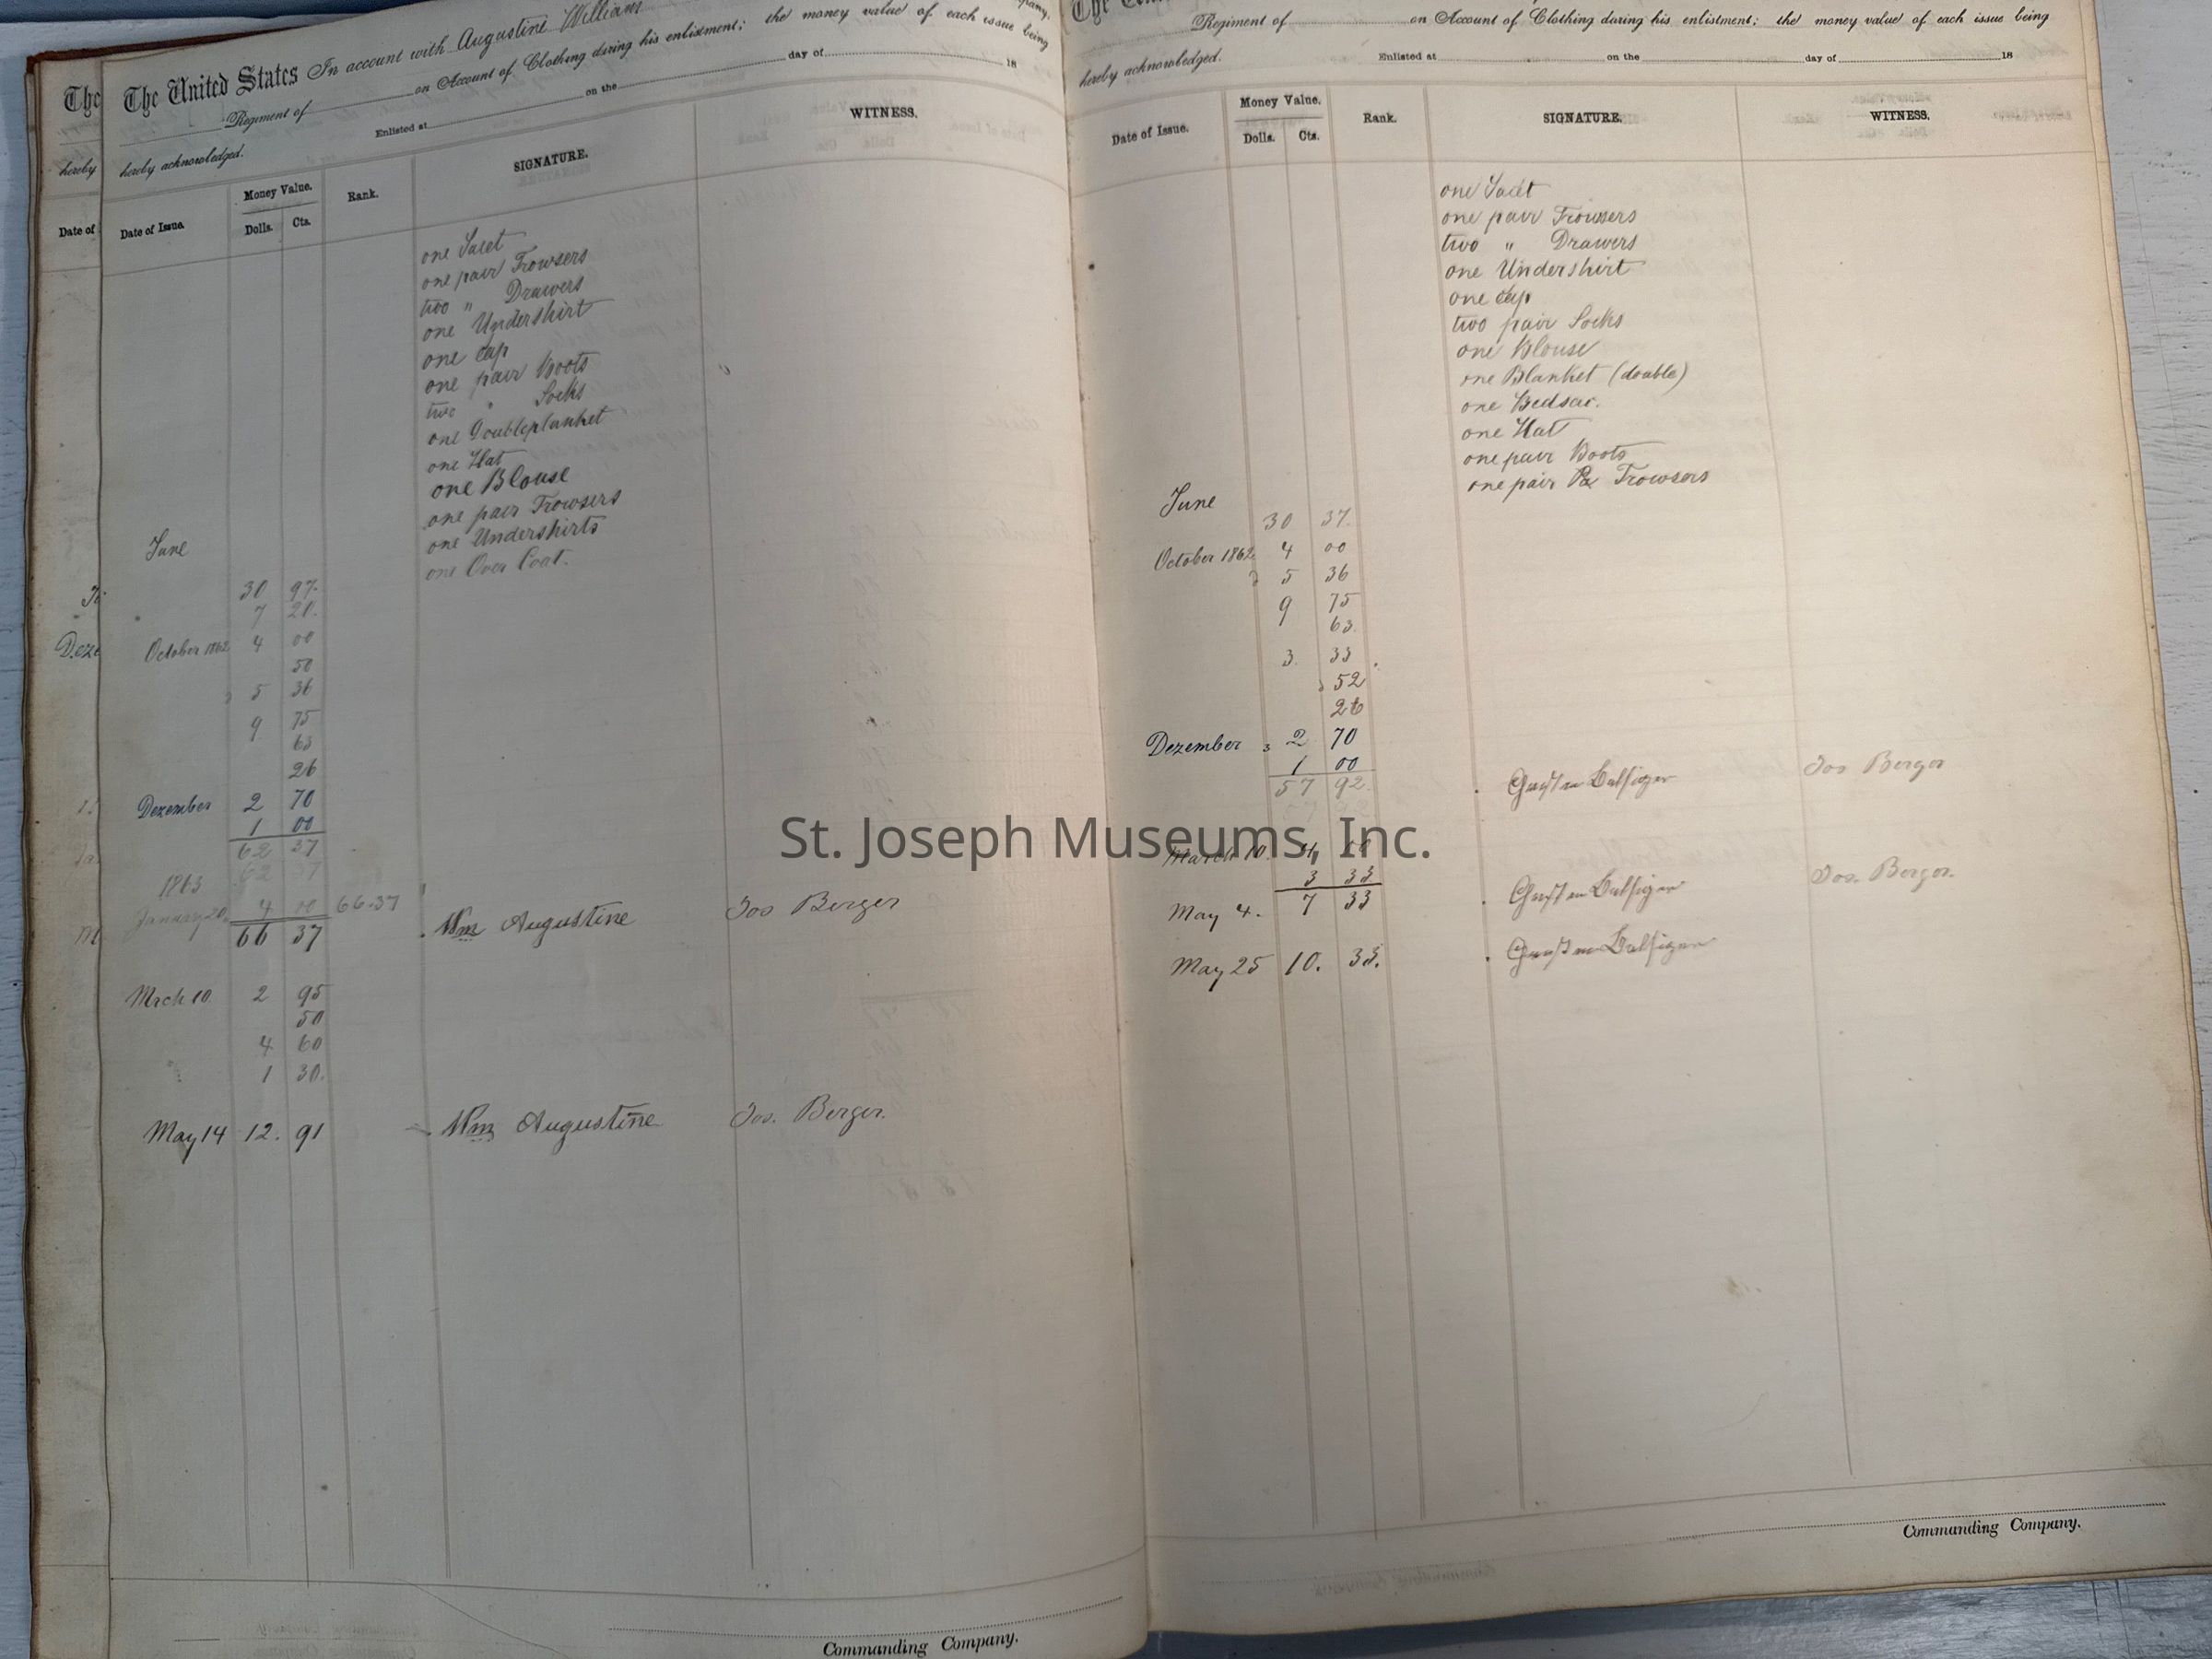 The United States In account with Augustine William
Regiment of on Account of Clothing during his enlistment; the money value of each issue being
hereby acknowledged. Enlisted at on the day of 18
Date of Issue. Money Value. Rank. SIGNATURE. WITNESS.
Dolls. Cts.
one Jacet
one pair Trowsers
two " Drawers
one Undershirt
one cap
one pair Boots
two " Socks
one Doubleplanket
one Hat
one Blouse
one pair Trowsers
one Undershirts
one Over Coat.
June
30 97.
7 20.
October 1862 4 00
50
5 36
9 75
63
26
Dezember 2 70
1 00
62 37
1863
January 20. 4 00 66.37
66 37 Wm Augustine Jos Berger
Mrch 10. 2 95
50
4 60
1 30.
May 14 12. 91 Wm Augustine Jos. Berger.
Commanding Company.
The
hereby
Date of
Deze
Regiment of on Account of Clothing during his enlistment; the money value of each issue being
hereby acknowledged. Enlisted at on the day of 18
Date of Issue. Money Value. Rank. SIGNATURE. WITNESS.
Dolls. Cts.
one Jacet
one pair Trowsers
two " Drawers
one Undershirt
one cap
two pair Socks
one Blouse
one Blanket (double)
one Bedsac.
one Hat
one pair Boots
one pair Trowsers
June
30 37.
October 1862 4 00
5 36
9 75
63.
3. 33
52
26
Dezember 2 70
1 00
57 92. Jos Berger
March 10.
3 33
May 4. 7 33 Jos. Berger.
May 25 10. 33.
Commanding Company.
St. Joseph Museums, Inc.